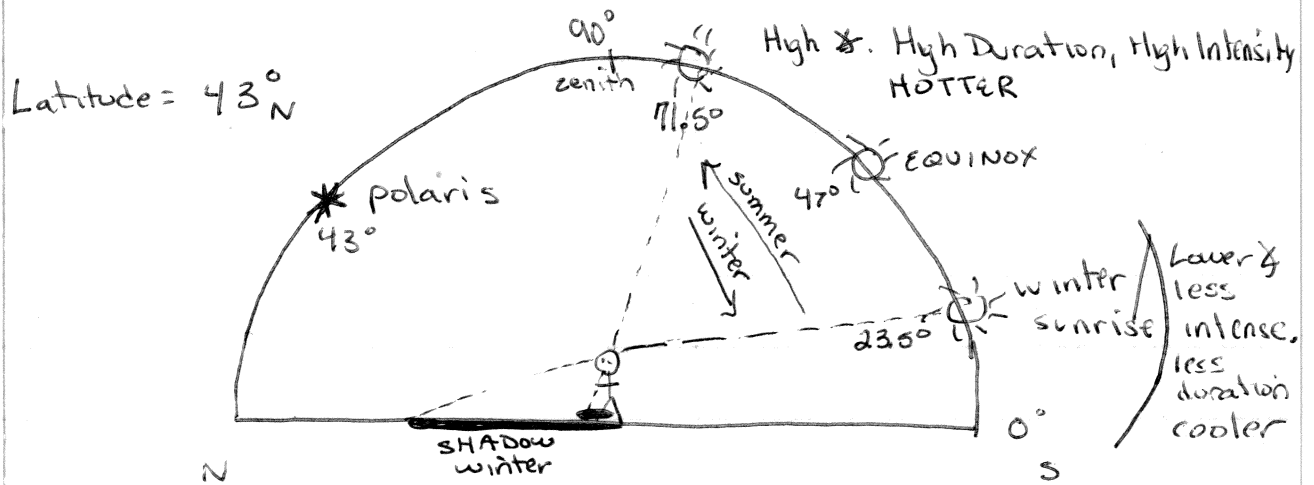 90°
zenith
High ∡. High Duration, High Intensity
HOTTER
Latitude = 43°N
71.5°
EQUINOX
47°
polaris
43°
summer
winter
winter
sunrise
23.5°
Lower ∡
less
intense,
less
duration
cooler
SHADOW
winter
0°
N
S